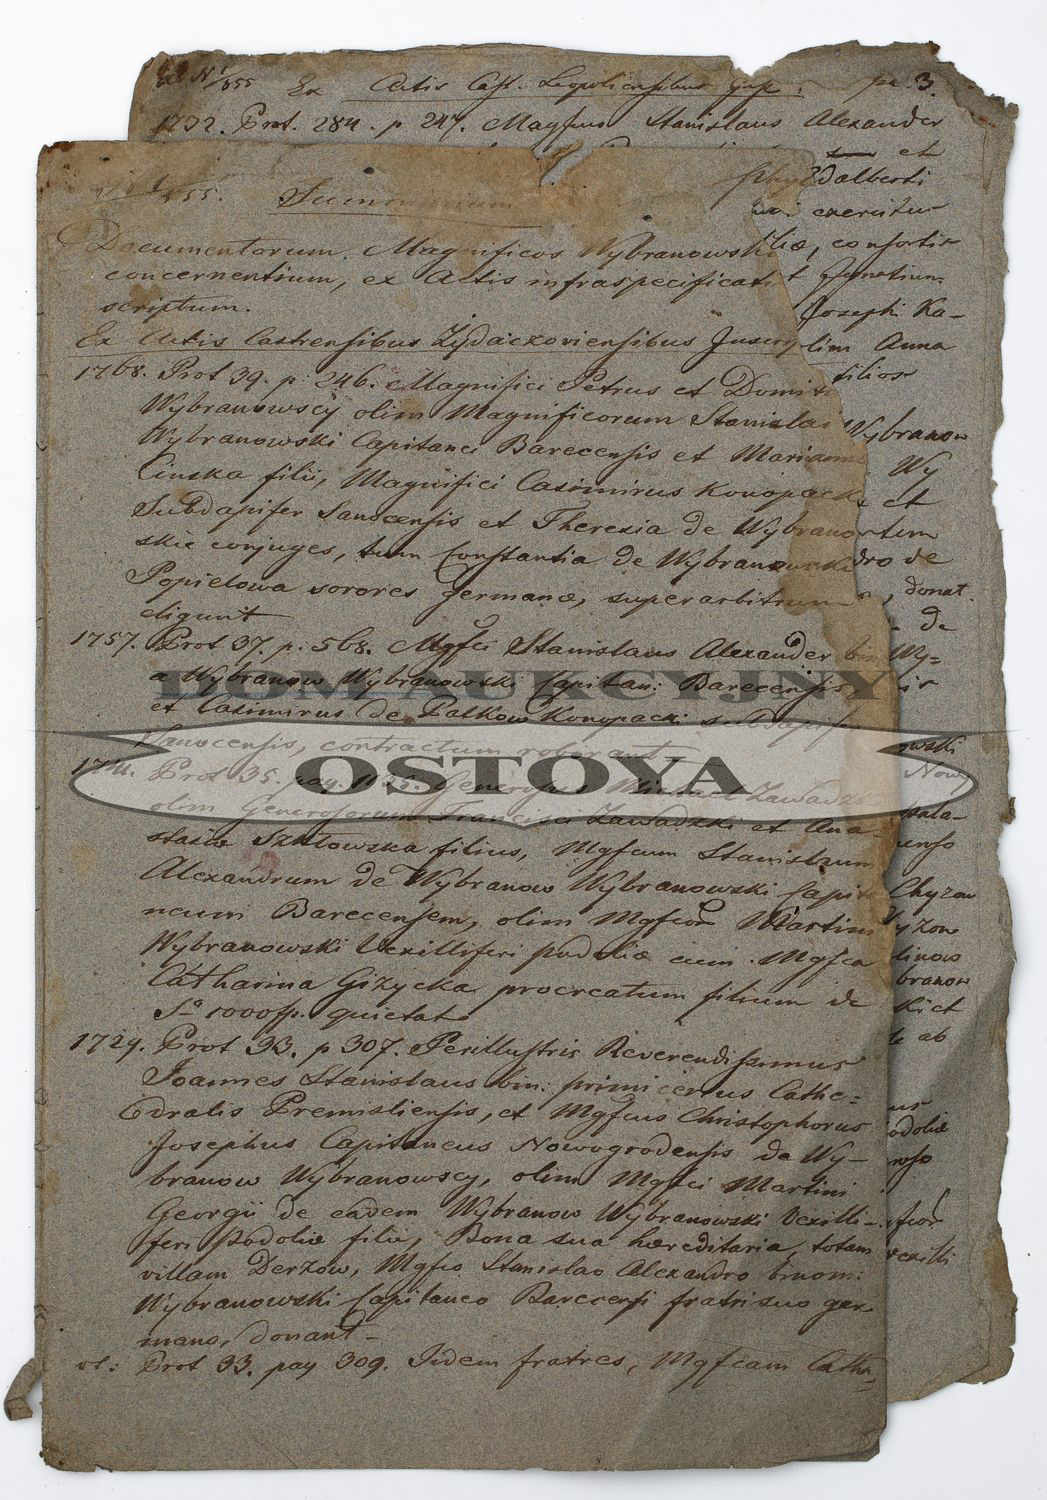 Ex Actis Cast. Leopoliensibus pa. 3.
1732. Prot. 284. p 247. Magfcus Stanislaus Alexander
et
dalberti
exercitus
liæ, consortis
t Ignatium
Joseph Ka-
olim Anna
filios
Wybranow
Wy
et
tum
dro de
, donat.
de
Wy=
is
owski
Now
pala-
enso
Chyzow
yzow
linow
branow
ki et
de ab
us
odoliæ
enso
fcor
vexilli
855.
Summarium
Documentorum. Magnificos Wybranowski
concernentium, ex Actis infraspecificati
scriptum.
Ex Actis Castrensibus Zydaczoviensibus
1768. Prot 39. p. 246. Magnifici Petrus et Domit
Wybranowscy olim Magnificorum Stanislai
Wybranowski Capitanei Barecensis et Marianna
linska filii, Magnifici Casimirus Konopack
Subdapifer Sanocensis et Therezia de Wybranow
skie conjuges, tum Constantia de Wybranowski
Popielowa sorores germanæ, superarbitrum
eligunt
1757. Prot 37. p: 568. Mgfci Stanislaus Alexander bin
a Wybranow Wybranowski Capitan: Barecensis,
et Casimirus de Palkow Konopack: subdapif
Sanocensis, contractum roborant
Prot 35. pag. Generosus Michael Zawadzki
olim Generosorum Francisci Zawadzki et Ana-
stasiæ Szulowska filius, Mgfcum Stanislaum
Alexandrum de Wybranow Wybranowski Capit
neum Barecensem, olim Mgfcor Martini
Wybranowski Vexilliferi podoliæ cum Mgfca
Catharina Gizycka procreatum filium de
Sa 1000 fp. quietat
1729. Prot 33. p 307. Perillustris Reverendissimus
Joannes Stanislaus bin: primicerius Cathe=
dralis Premisliensis, et Mgfcus Christophorus
Josephus Capitaneus Nowogrodensis de Wy-
branow Wybranowscy, olim Mgfci Martini
Georgii de eadem Wybranow Wybranowski Vexilli-
feri Podoliæ filii, Bona sua hæreditaria, totam
villam Derzow, Mgfco Stanislao Alexandro binomi:
Wybranowski Capitaneo Barecensi fratri suo ger
mano, donant-
Prot 33. pag 309. Iidem fratres, Mgfcam Catha
DOM AUKCYJNY
OSTOYA